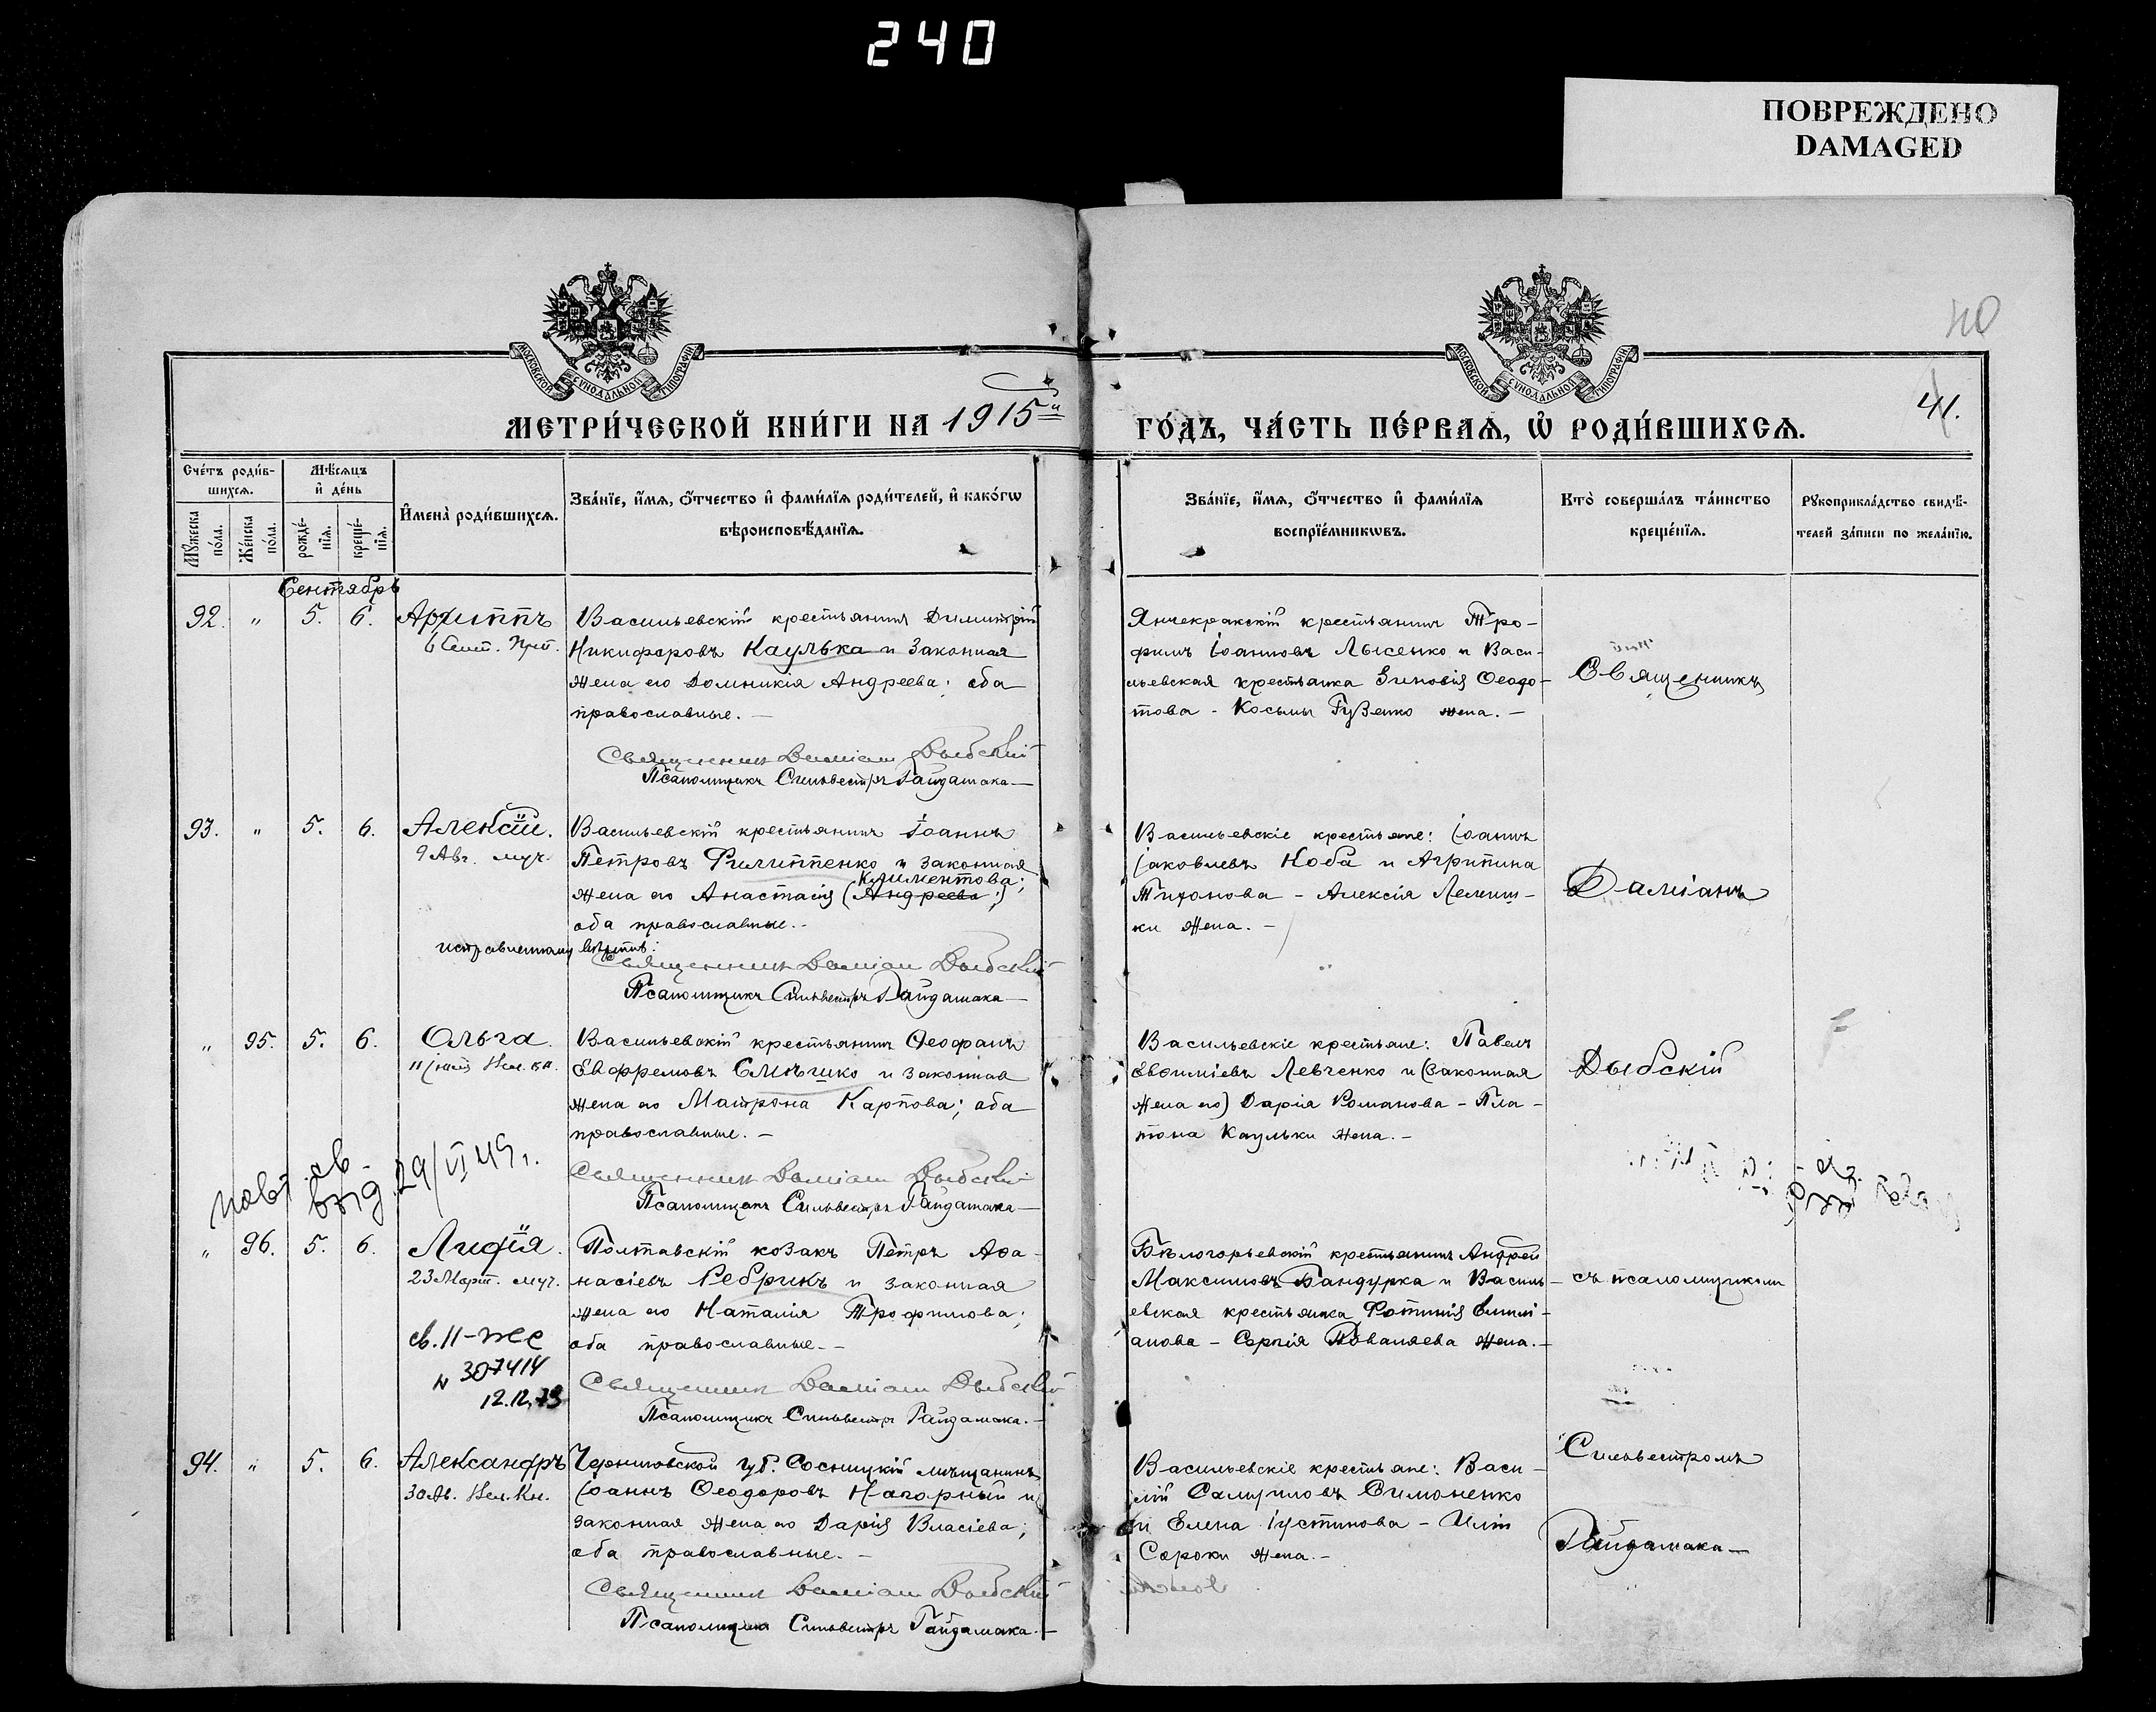 240
ПОВРЕЖДЕНО
DAMAGED
40
МОСКОВСКОЙ СѴНОДАЛЬНОЙ ТИПОГРАФІИ
МОСКОВСКОЙ СѴНОДАЛЬНОЙ ТИПОГРАФІИ
41.
МЕТРИ́ЧЕСКОЙ КНИ́ГИ НА 1915й
ГО́ДЪ, ЧА́СТЬ ПЕ́РВАѦ, Ѡ҆ РОДИ́ВШИХСѦ.
Сче́тъ роди́в-
шихсѧ.
Мѣ́сѧцъ
и҆ де́нь
Мꙋ́жеска по́ла.
Же́нска по́ла.
рожде́-нїѧ.
креще́-нїѧ.
И҆мена̀ роди́вшихсѧ.
Зва́нїе, и҆́мѧ, ѻ҆́тчество и҆ фами́лїѧ роди́телей, и҆ како́гѡ
вѣроисповѣ́данїѧ.
Зва́нїе, и҆́мѧ, ѻ҆́тчество и҆ фами́лїѧ
воспрїе́мникѡвъ.
Кто̀ соверша́лъ та́инство
креще́нїѧ.
Рꙋкоприкла́дство свидѣ́-
телей за́писи по жела́нїю.
Сентябрь
92. " 5. 6. Архиппъ
6 Сент. Прп.
Васильевскій крестьянинъ Димитрій
Никифоровъ Каулька и законная
жена его Домникія Андреева; оба
православные. —
Священникъ Даміанъ Дыбскій
Псаломщикъ Сильвестръ Гайдамака —
Янчекракскій крестьянинъ Тро-
фимъ Іоанновъ Лысенко и Васи-
льевская крестьянка Зиновія Ѳеодо-
това - Косьмы Гузенко жена. —
Священникъ
93. " 5. 6. Алексій.
9 Авг. муч.
Васильевскій крестьянинъ Іоаннъ
Петровъ Филиппенко и законная
Климентова;
жена его Анастасія (Андреева;)
оба православные. -
исправленному вѣрить:
Священникъ Даміанъ Дыбскій
Псаломщикъ Сильвестръ Гайдамака —
Васильевскіе крестьяне: Іоаннъ
Іаковлевъ Коба и Агрипина
Тихонова - Алексія Лелеш-
ки жена. —
Даміанъ
" 95. 5. 6. Ольга.
11 Іюля Вел. кн.
Васильевскій крестьянинъ Ѳеофанъ
Евфремовъ Смѣшко и законная
жена его Матрона Карпова; оба
православные. —
Священникъ Даміанъ Дыбскій
Псаломщикъ Сильвестръ Гайдамака —
Васильевскіе крестьяне: Павелъ
Евѳиміевъ Левченко и (законная
жена его) Дарія Романова - Пла-
тона Каульки жена. —
Дыбскій
29/VI 49 г.
" 96. 5. 6. Лидія.
23 Март. муч.
св. II-ЖС
N 307414
12.12.73
Полтавскій козакъ Петръ Аѳа-
насіевъ Ребрикъ и законная
жена его Наталія Трофимова;
оба православные. -
Священникъ Даміанъ Дыбскій
Псаломщикъ Сильвестръ Гайдамака. —
Бѣлогорьевскій крестьянинъ Андрей
Максимовъ Бандурка и Василь-
евская крестьянка Фотинія Емилі-
анова - Сергія Поваляева жена. —
съ псаломщикомъ
94. " 5. 6. Александръ
30 Ав. Вел. Кн.
Черниговской губ. Сосницкій мѣщанинъ
Іоаннъ Ѳеодоровъ Нагорный и
законная жена его Дарія Власіева;
оба православные. —
Священникъ Даміанъ Дыбскій
Псаломщикъ Сильвестръ Гайдамака. —
Васильевскіе крестьяне: Васи-
лій Самуиловъ Симоненко
и Елена Іустинова - Иліи
Сороки жена. —
Сильвестромъ
Гайдамака —